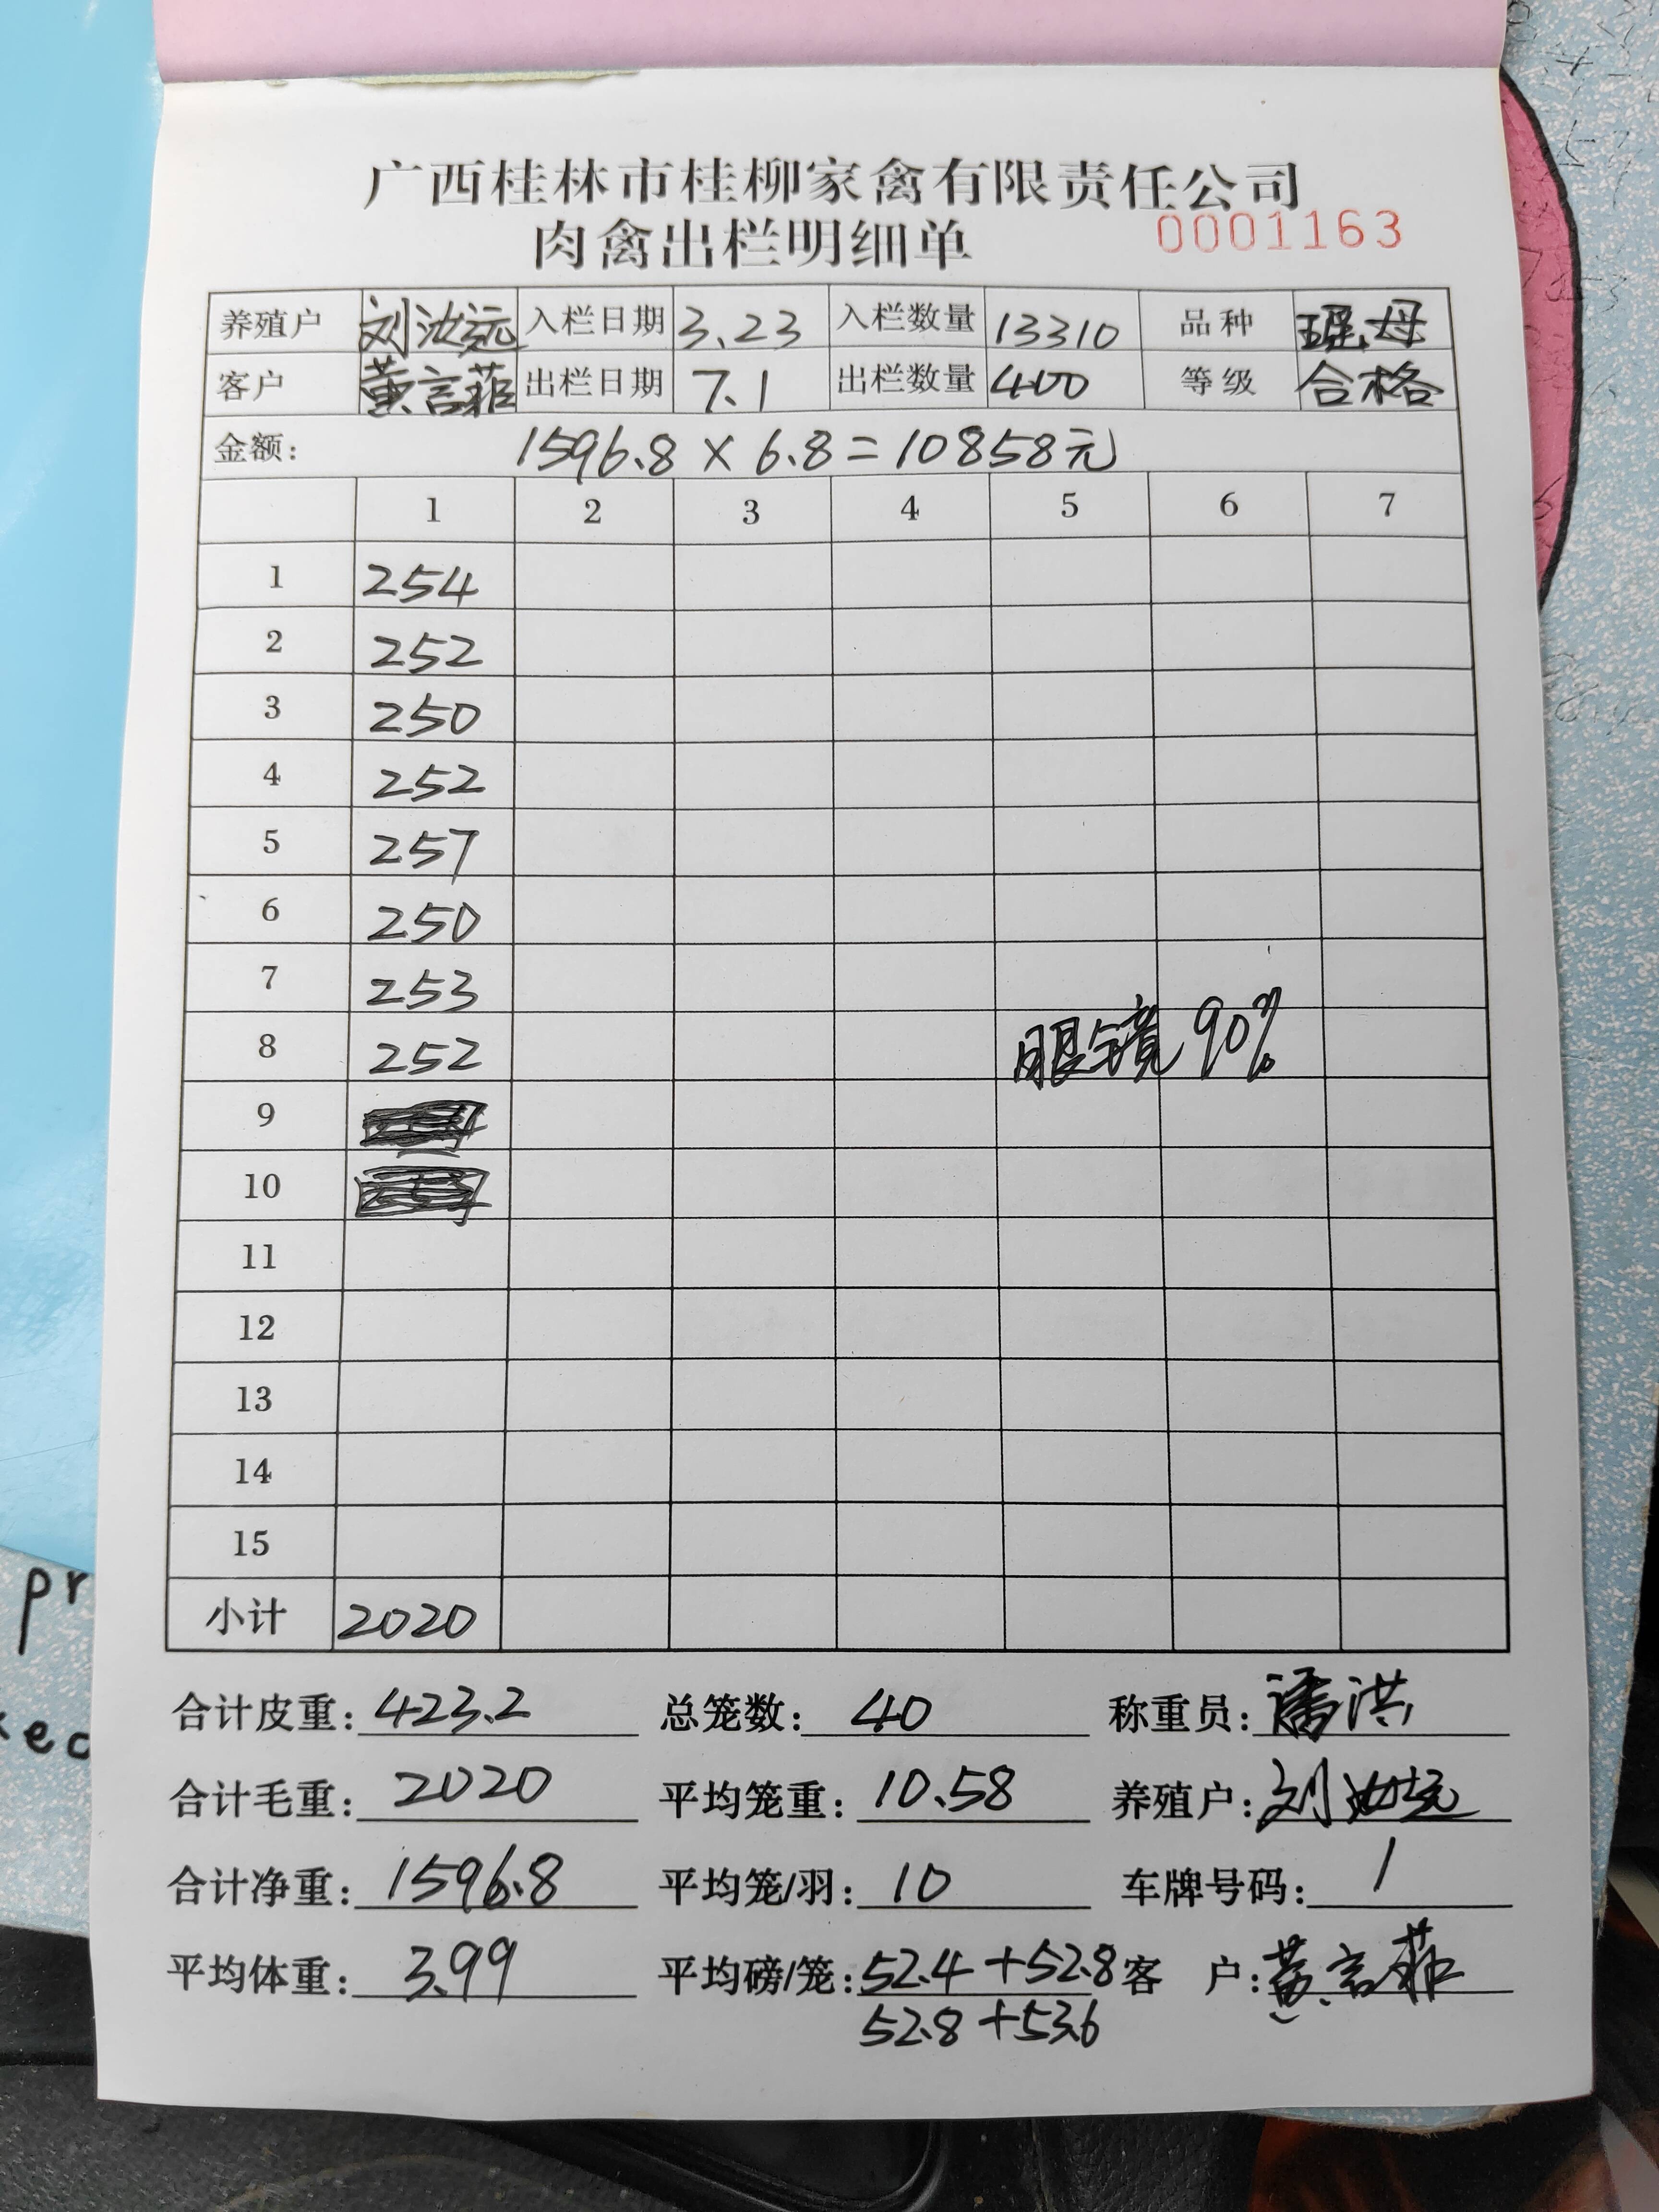 广西桂林市桂柳家禽有限责任公司
肉禽出栏明细单 0001163
养殖户 刘汝远 入栏日期 3.23 入栏数量 13310 品种 瑶母
客户 黄言菲 出栏日期 7.1 出栏数量 400 等级 合格
金额: 1596.8 × 6.8 = 10858元
1 2 3 4 5 6 7
1 254
2 252
3 250
4 252
5 257
6 250
7 253
8 252 眼镜 90%
9
10
11
12
13
14
15
小计 2020
合计皮重: 423.2 总笼数: 40 称重员: 潘洪
合计毛重: 2020 平均笼重: 10.58 养殖户: 刘汝远
合计净重: 1596.8 平均笼/羽: 10 车牌号码: 1
平均体重: 3.99 平均磅/笼: 52.4 + 52.8 客 户: 黄言菲
52.8 + 53.6
pr